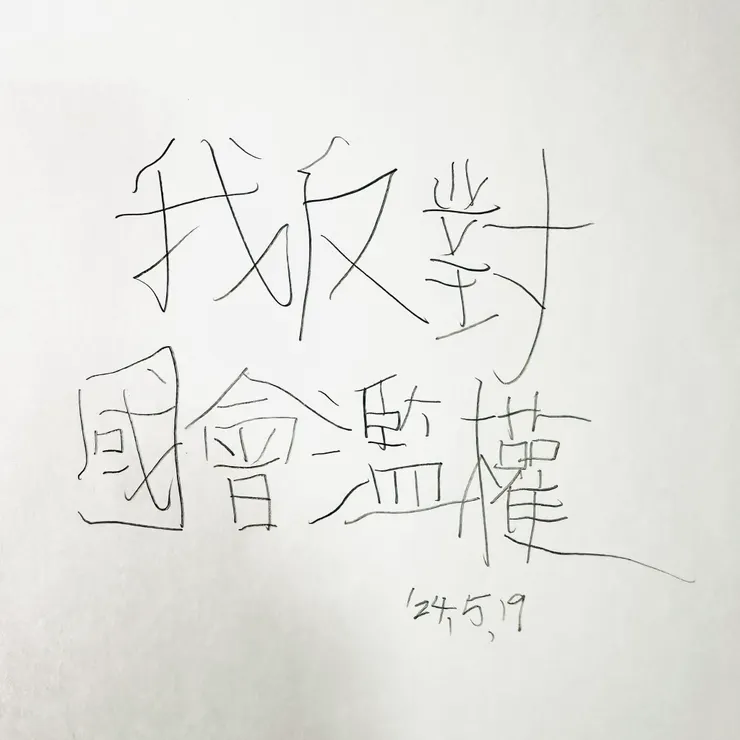 我反對
國會濫權
'24,5,19